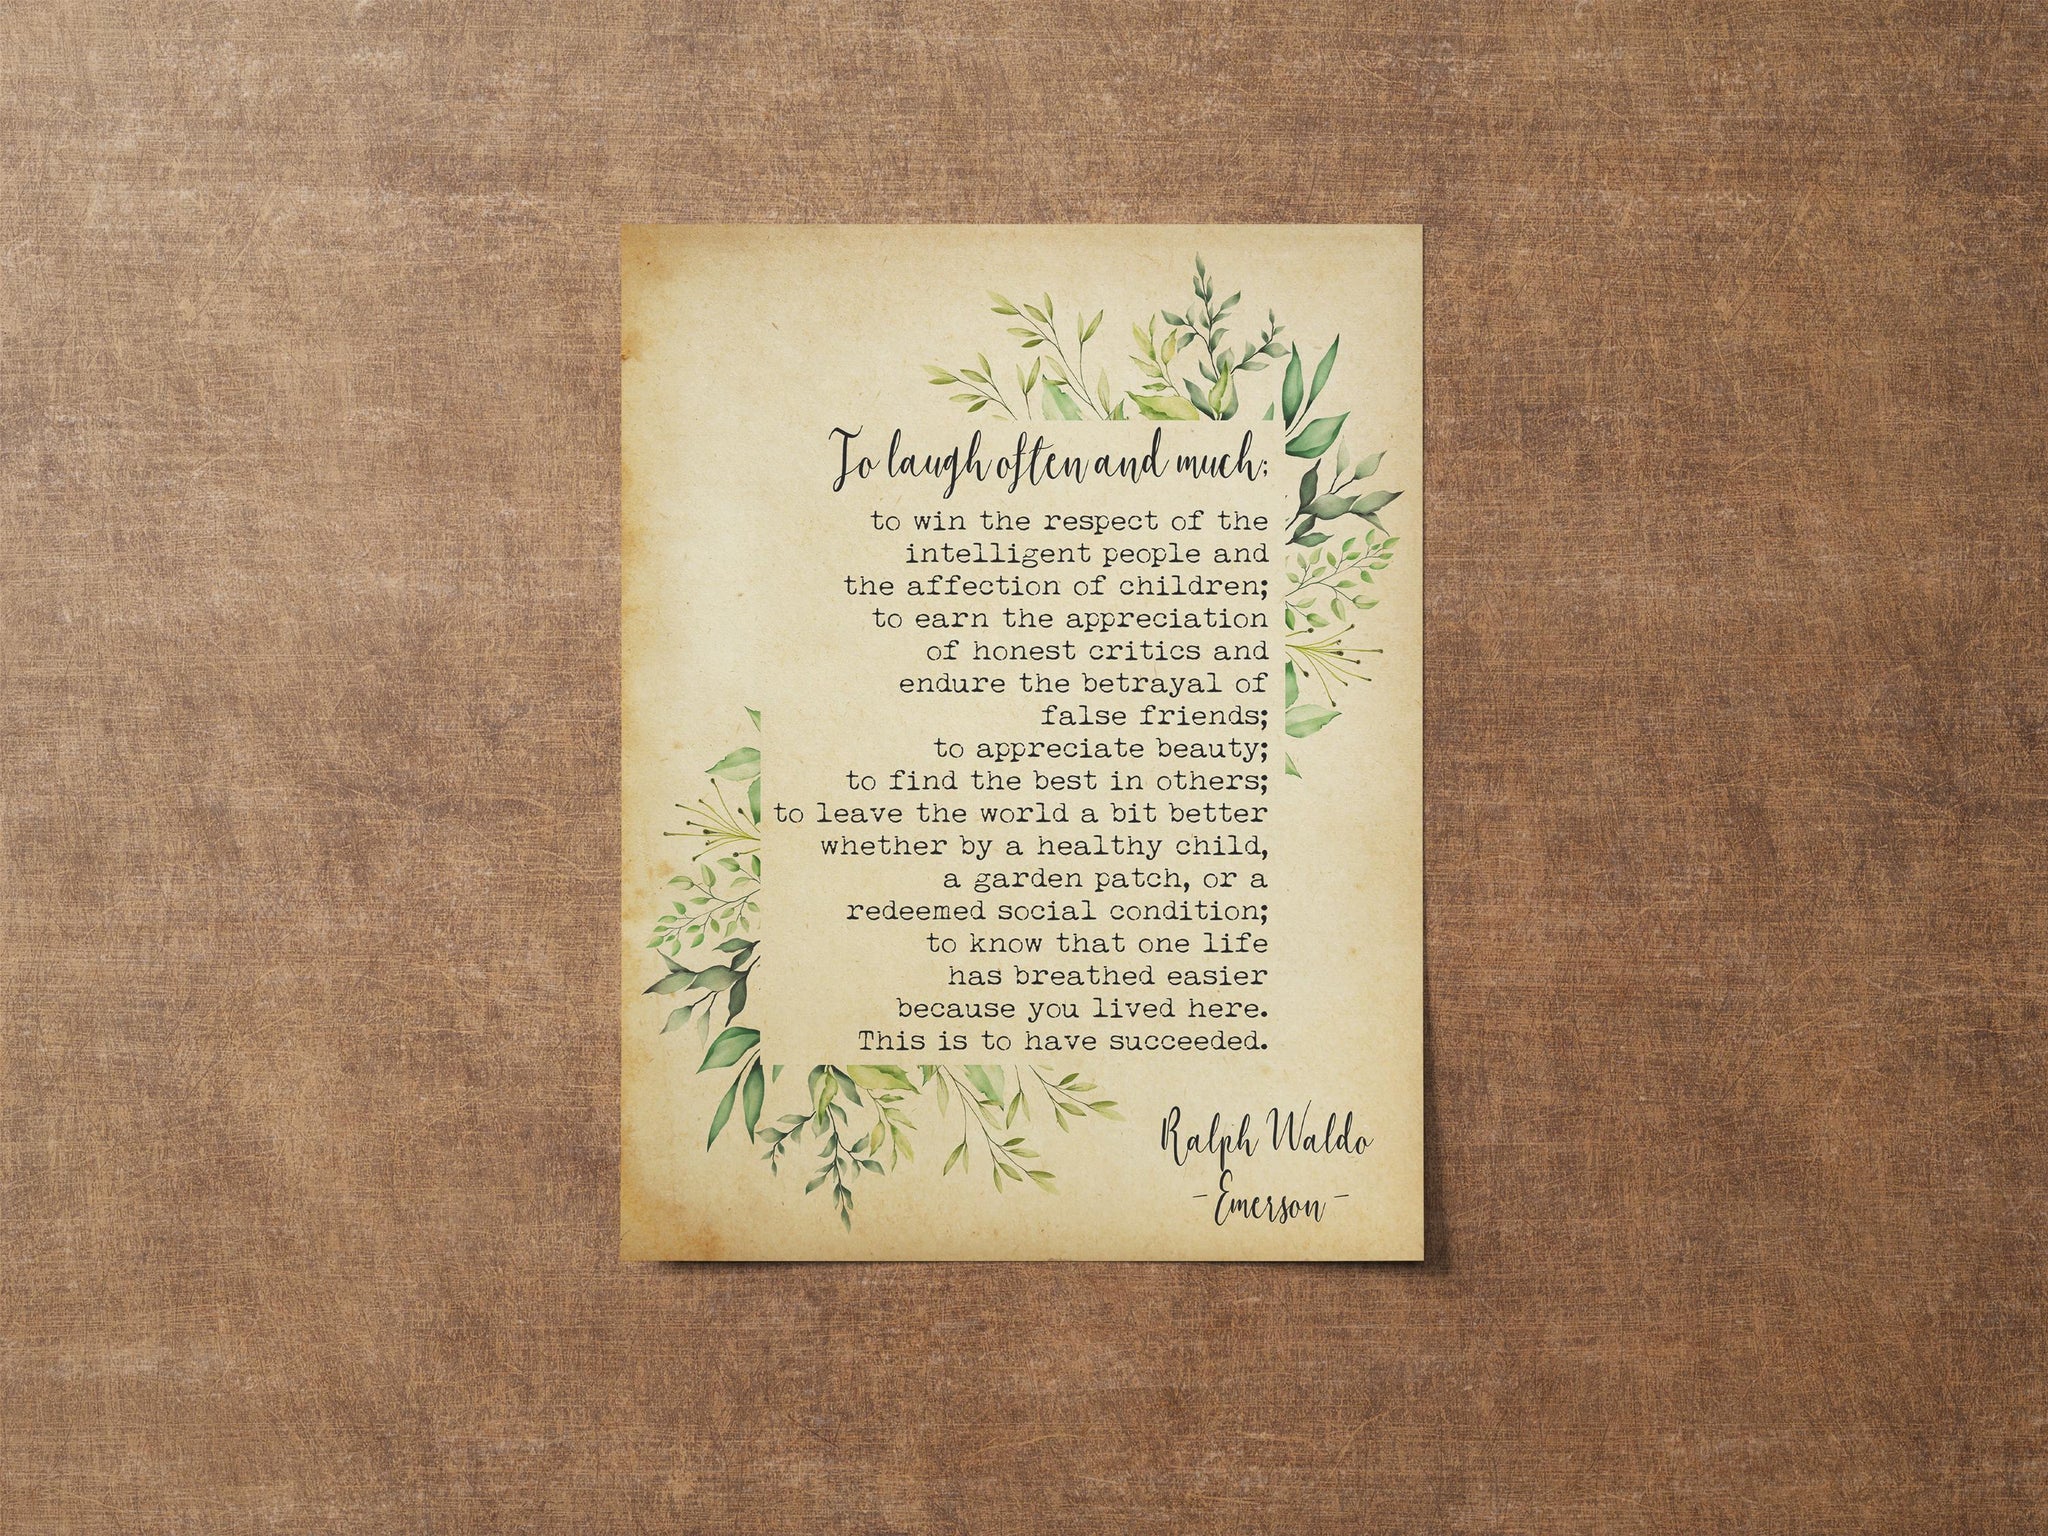 To laugh often and much;
to win the respect of the
intelligent people and
the affection of children;
to earn the appreciation
of honest critics and
endure the betrayal of
false friends;
to appreciate beauty;
to find the best in others;
to leave the world a bit better
whether by a healthy child,
a garden patch, or a
redeemed social condition;
to know that one life
has breathed easier
because you lived here.
This is to have succeeded.
Ralph Waldo
- Emerson -